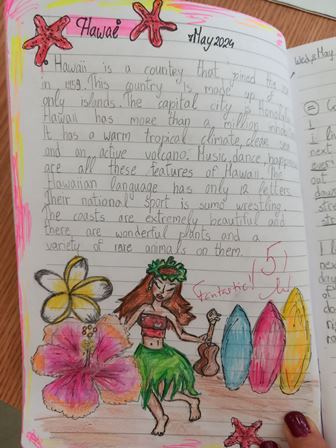 Hawai
May 2024
Hawaii is a country that joined the
in 1959. This country is made up of
only islands. The capital city is Honolulu
Hawaii has more than a million
It has a warm tropical climate, clean sea
and an active volcano. Music, dance,
are all these features of Hawaii. The
Hawaiian language has only 12 letters
Their national sport is sumo wrestling.
The coasts are extremely beautiful and
there are wonderful plants and a
variety of rare animals on them.
Fantastic! (5)
Wed, May
next
out
day